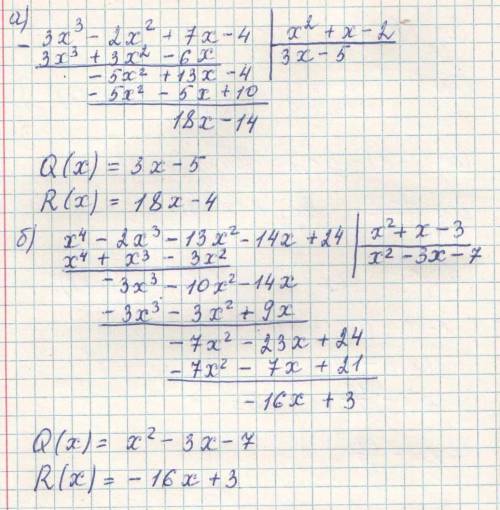 а)
- 3x³ - 2x² + 7x - 4 | x² + x - 2
3x³ + 3x² - 6x | 3x - 5
- 5x² + 13x - 4
- 5x² - 5x + 10
18x - 14
Q(x) = 3x - 5
R(x) = 18x - 4
б) x⁴ - 2x³ - 13x² - 14x + 24 | x² + x - 3
x⁴ + x³ - 3x² | x² - 3x - 7
- 3x³ - 10x² - 14x
- 3x³ - 3x² + 9x
- 7x² - 23x + 24
- 7x² - 7x + 21
- 16x + 3
Q(x) = x² - 3x - 7
R(x) = - 16x + 3